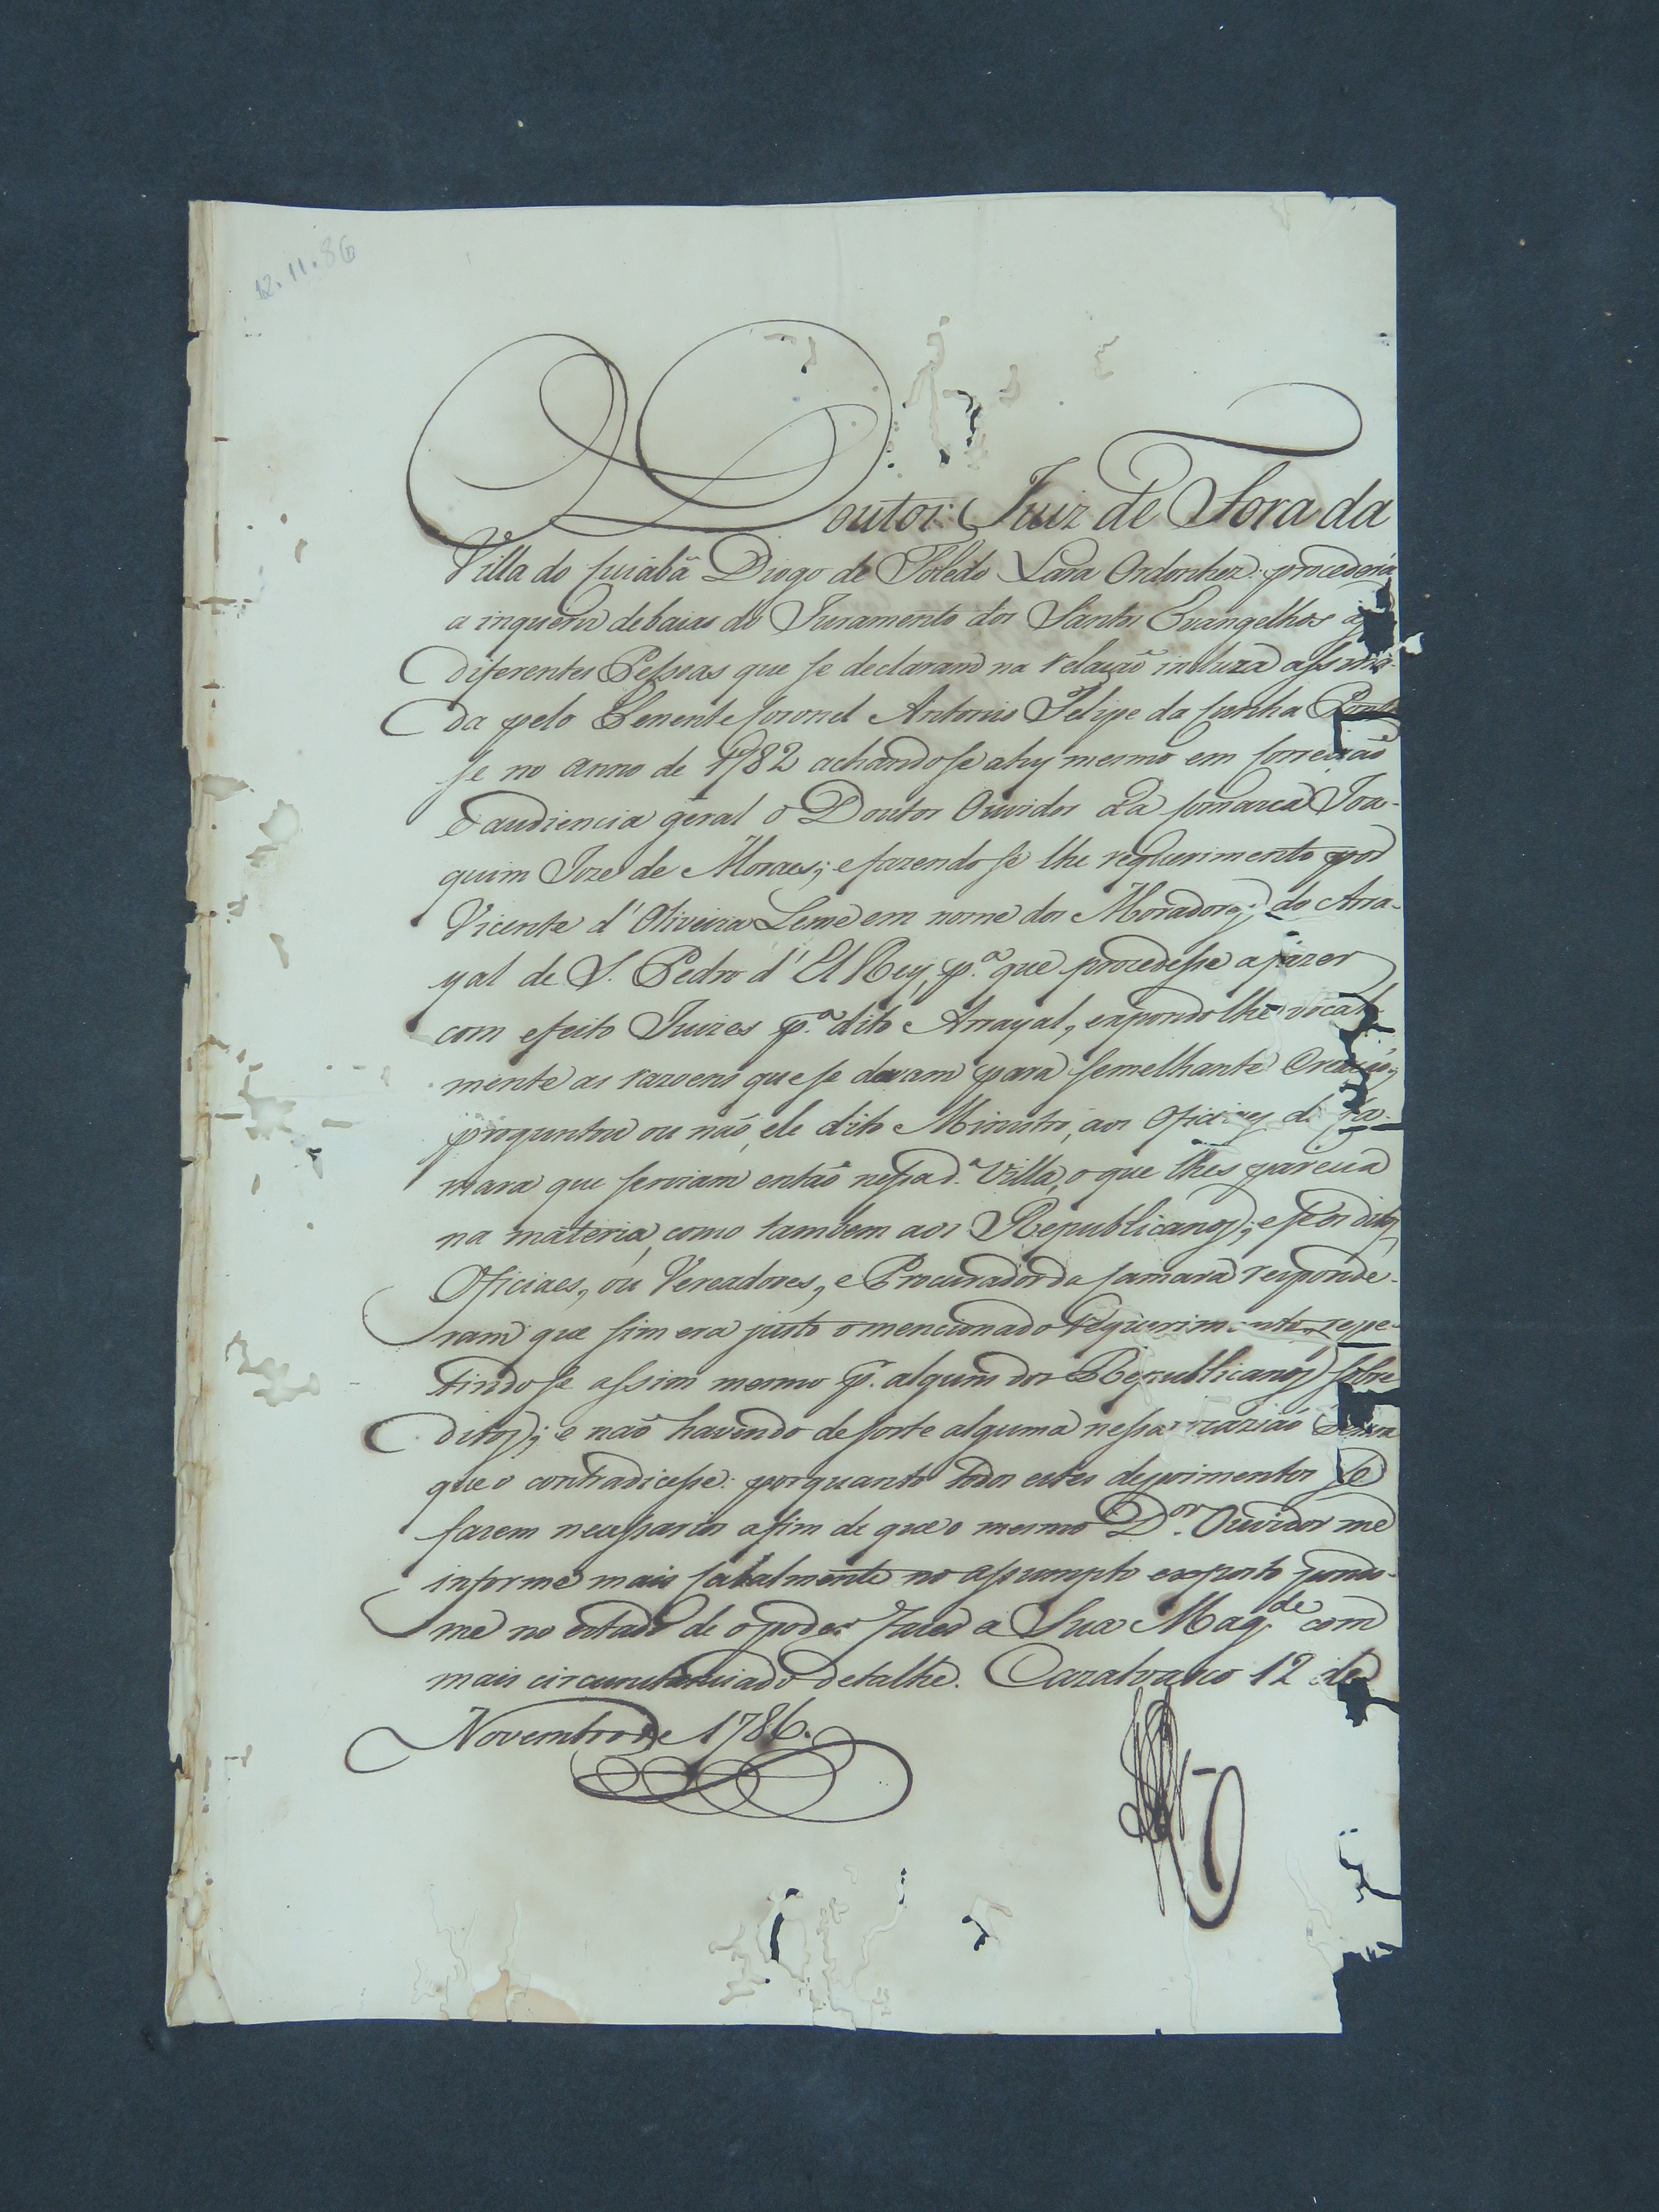 12.11.86
Doutor Juiz de Fora da
Villa do Cuiabá Diogo de Toledo Lara Ordonhez: procederá
a inquerir debaixo do Juramento dos Santos Evangelhos as
diferentes Pessoas que se declaraõ na relaçaõ incluza assina-
da pelo Tenente Coronel Antonio Felipe da Cunha Ponte
se no anno de 1782 achando se ahy mesmo em Correiçaõ
e audiencia geral o Doutor Ouvidor da Comarca Joa-
quim Joze de Moraes; e fazendo se lhe requerimento por
Vicente d'Oliveira Leme em nome dos Moradores do Arra-
yal de S. Pedro d'El Rey, p.ª que procedesse a fazer
com efeito Juizes p.ª dito Arrayal, expondo lhe vocal
mente as razoens que se davam para semelhante Creaçaõ;
proguntou ou naõ, ele dito Ministro, aos Oficiaes da Ca-
mara que serviam entaõ nessa d.ª Villa, o que lhes parecia
na materia, como tambem aos Republicanos; e se os ditos
Oficiaes, ou Vereadores, e Procurador da Camara responde-
ram que sim era justo o mencionado requerimento, repe-
tindo se assim mesmo p. alguns dos Republicanos sobre
ditos; e naõ havendo de sorte alguma nessa ocaziaõ
que o contradicesse: porquanto todos estes depoimentos se
fazem necessarios afim de que o mesmo D.or Ouvidor me
informe mais cabalmente no assumpto exposto pondo-
me no estado de o poder fazer a Sua Mag.de com
mais circunstanciado detalhe. Cazalvasco 12 de
Novembro de 1786.